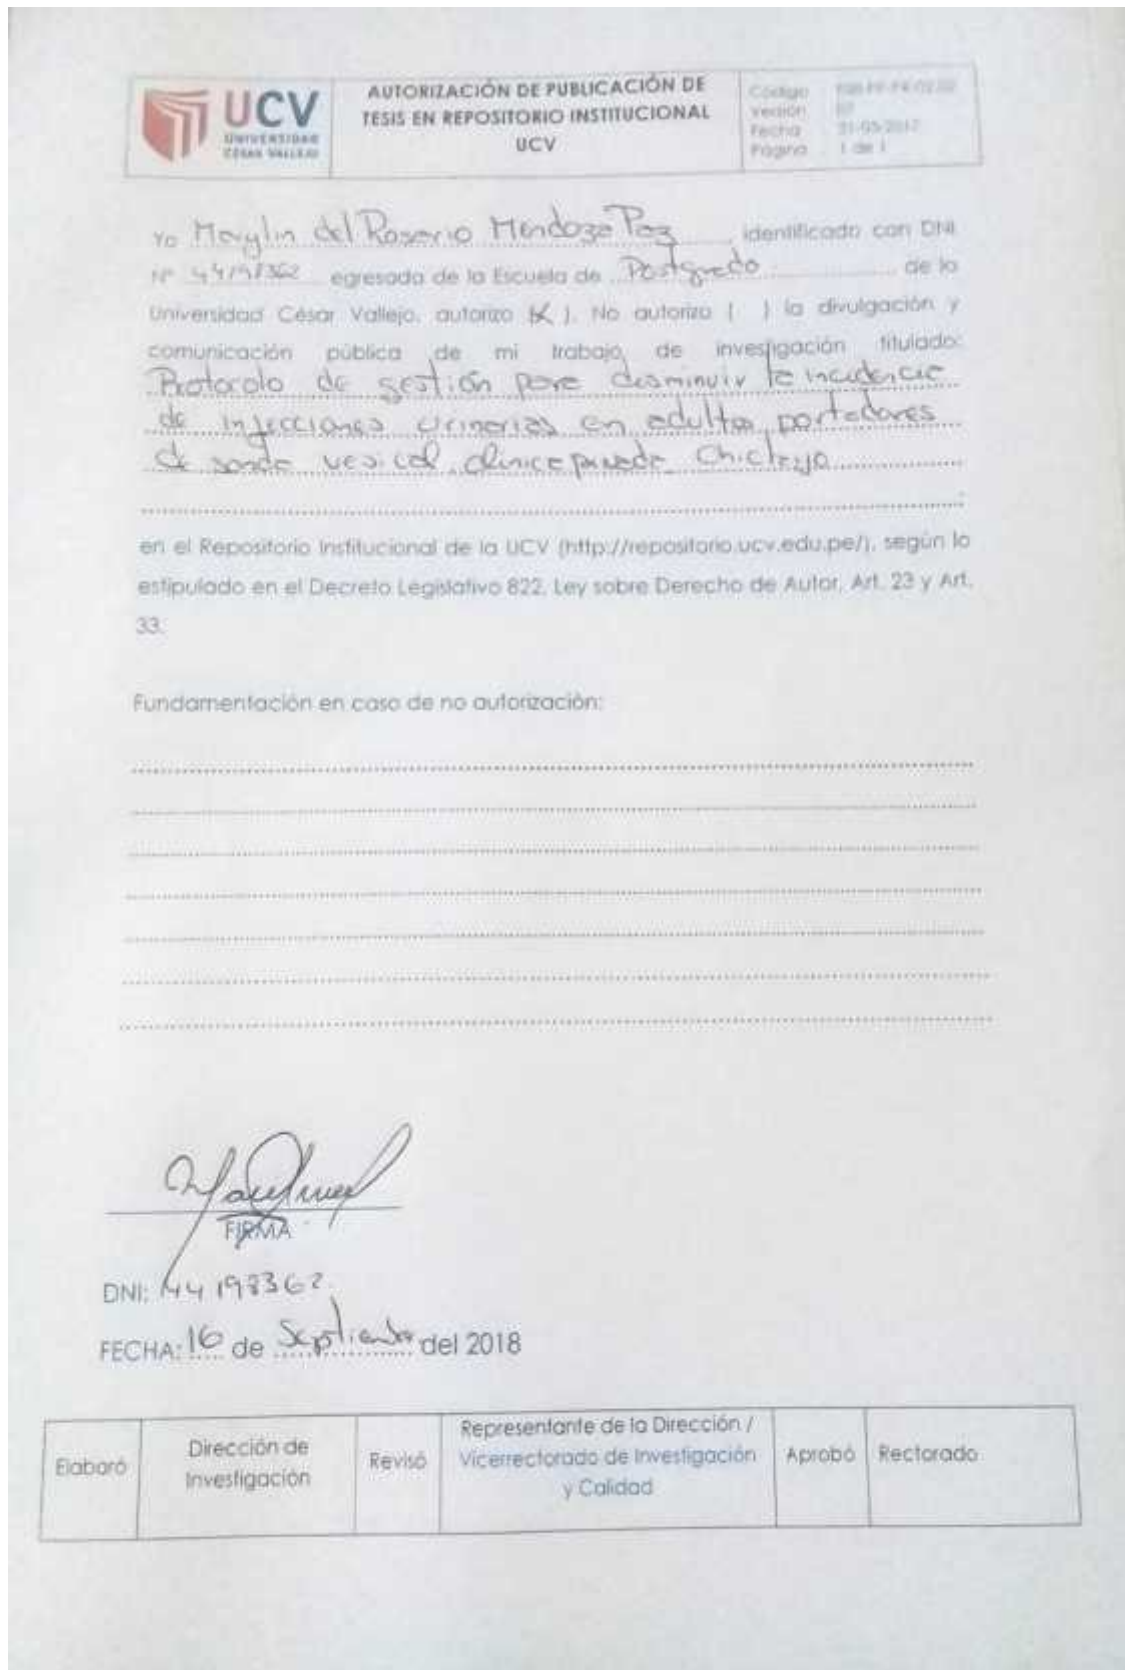 UCV
UNIVERSIDAD
CÉSAR VALLEJO
AUTORIZACIÓN DE PUBLICACIÓN DE
TESIS EN REPOSITORIO INSTITUCIONAL
UCV
Código : F08-PP-PR-02.02
Versión :
Fecha : 31-03-2017
Página : 1 de 1
Yo Marylin del Rosario Mendoza Paz identificado con DNI
Nº 44198362 egresada de la Escuela de Postgrado de la
Universidad César Vallejo, autorizo (X ), No autorizo ( ) la divulgación y
comunicación pública de mi trabajo de investigación titulado:
Protocolo de gestión para disminuir la incidencia
de infecciones urinarias en adultos portadores
de sonda vesical clinica privada Chiclayo
en el Repositorio Institucional de la UCV (http://repositorio.ucv.edu.pe/), según lo
estipulado en el Decreto Legislativo 822, Ley sobre Derecho de Autor, Art. 23 y Art.
33.
Fundamentación en caso de no autorización:
FIRMA
DNI: 44198362
FECHA: 16 de Septiembre del 2018
Elaboró
Dirección de
Investigación
Revisó
Representante de la Dirección /
Vicerrectorado de Investigación
y Calidad
Aprobó
Rectorado